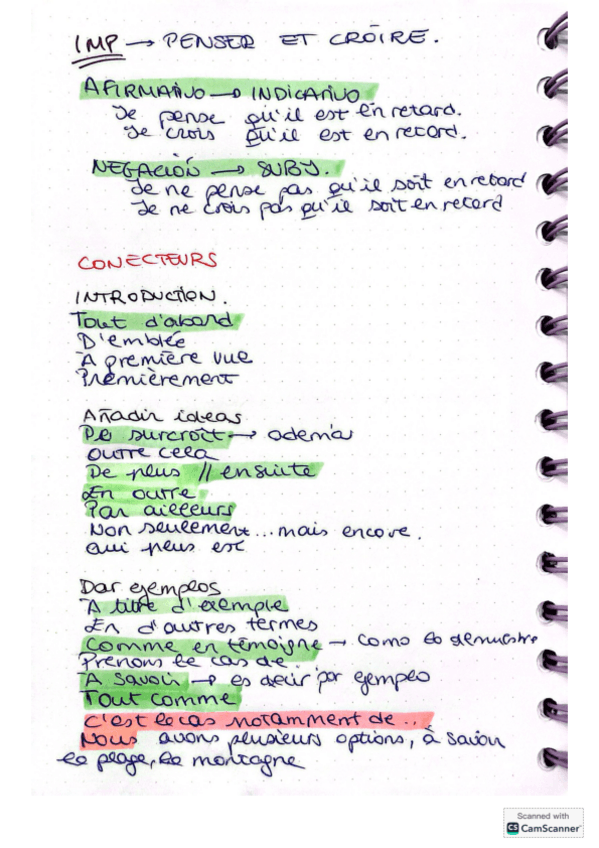 IMP → PENSER ET CROIRE.
AFIRMATIVO → INDICATIVO
Je pense qu'il est en retard.
Je crois qu'il est en retard.
NEGACIÓN → SUBJ.
Je ne pense pas qu'il soit en retard
Je ne crois pas qu'il soit en retard
CONECTEURS
INTRODUCTION.
Tout d'abord
D'emblée
A première vue
Premièrement
Añadir ideas
De surcroît → además
Outre cela
De plus // ensuite
En outre
Par ailleurs
Non seulement... mais encore.
Qui plus est
Dar ejemplos
A titre d'exemple
En d'autres termes
Comme en témoigne → como lo demuestra
Prenons le cas de
A savoir → es decir/por ejemplo
Tout comme
C'est le cas notamment de...
Nous avons plusieurs options, à savoir
la plage, la montagne
Scanned with
CS CamScanner